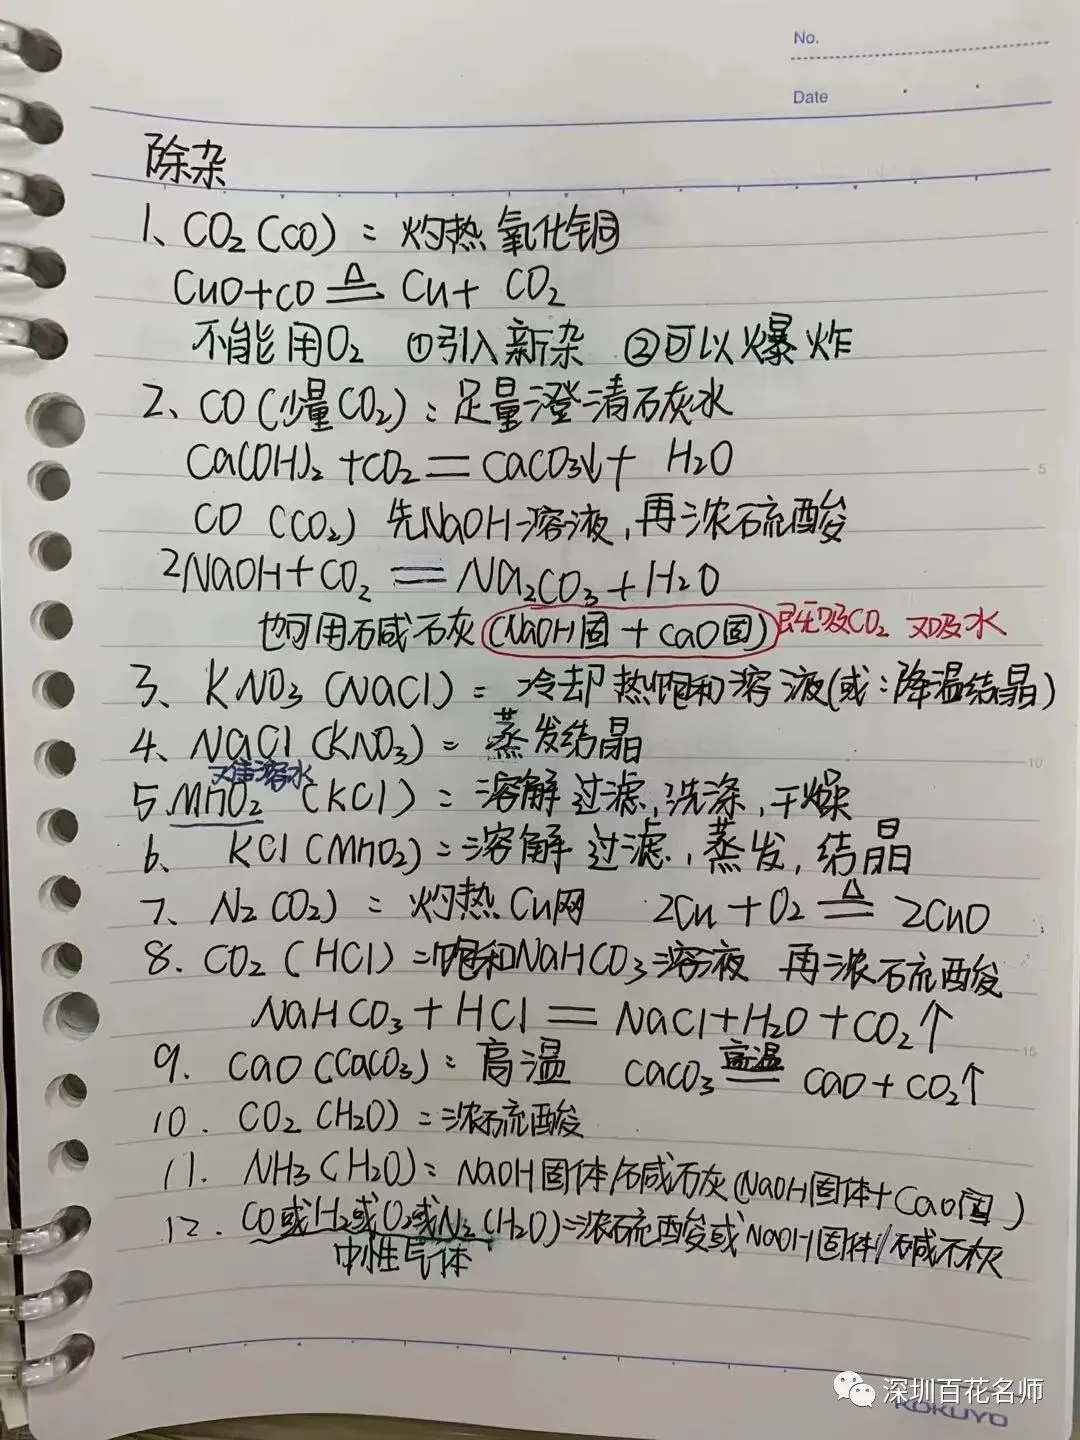 No.
Date
除杂
1、CO₂(CO):灼热氧化铜
CuO+CO ≜ Cu+ CO₂
不能用O₂ ①引入新杂 ②可以爆炸
2、CO(少量CO₂):足量澄清石灰水
Ca(OH)₂+CO₂=CaCO₃↓+ H₂O
CO (CO₂) 先NaOH溶液,再浓硫酸
2NaOH+CO₂ = Na₂CO₃+H₂O
也可用碱石灰(NaOH固+CaO固)既吸CO₂ 又吸水
3、KNO₃(NaCl):冷却热饱和溶液(或:降温结晶)
4、NaCl(KNO₃):蒸发结晶
难溶水
5.MnO₂ (KCl):溶解 过滤,洗涤,干燥
6、KCl(MnO₂):溶解 过滤,蒸发,结晶
7、N₂(O₂):灼热Cu网 2Cu+O₂ ≜ 2CuO
8.CO₂(HCl):饱和NaHCO₃溶液 再浓硫酸
NaHCO₃+HCl=NaCl+H₂O+CO₂↑
高温
9.CaO(CaCO₃):高温 CaCO₃ = CaO+CO₂↑
10.CO₂(H₂O):浓硫酸
11.NH₃(H₂O):NaOH固体/碱石灰(NaOH固体+CaO固)
12.CO或H₂或O₂或N₂(H₂O):浓硫酸或NaOH固体//碱石灰
中性气体
5
10
15
深圳百花名师
KOKUYO